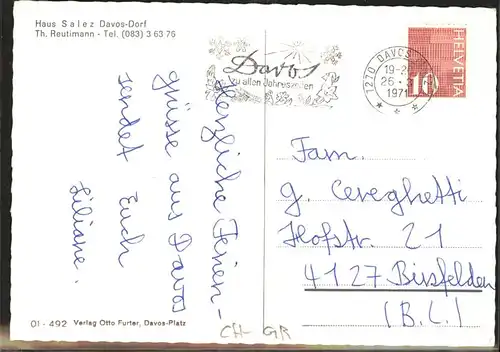 Haus Salez Davos-Dorf
Th. Reutimann - Tel. (083) 3 63 76
Herzliche Ferien-
grüsse aus Davos
sendet Euch
Liliane.
01 - 492 Verlag Otto Furter, Davos-Platz
Davos
zu allen Jahreszeiten
1270 DAVOS
26
1971
HELVETIA
10
Fam.
G. Cereghetti
Hofstr. 21
4127 Birsfelden
(B.L.)
CH GR